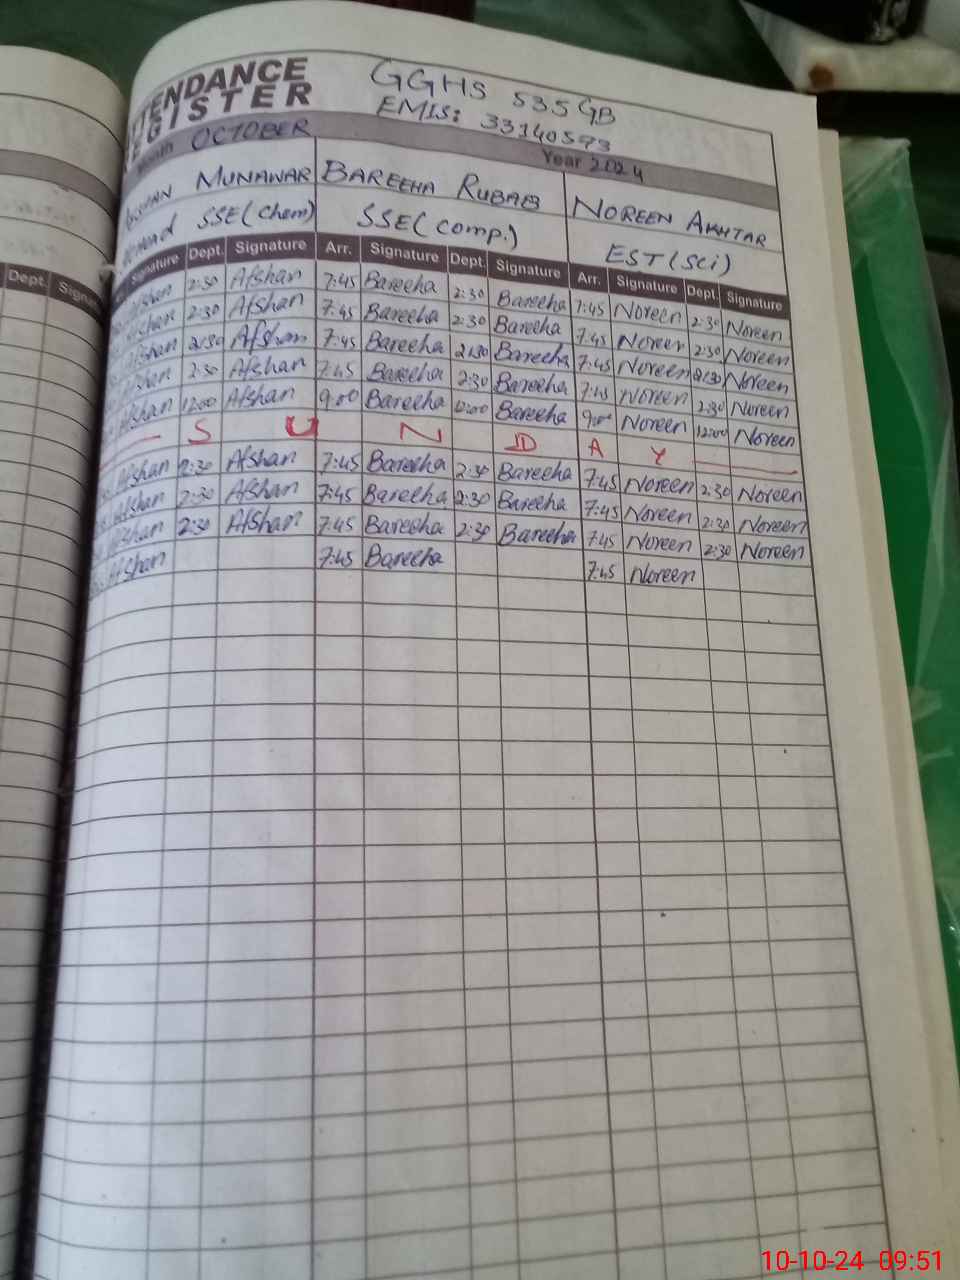 GGHS 535 GB
EMIS: 33140593
OCTOBER Year 2024
MUNAWAR BAREEHA RUBAB NOREEN AKHTAR
SSE (Chem) SSE (Comp.) EST (Sci)
Dept. Signature Dept. Signature Arr. Signature Dept. Signature Arr. Signature Dept. Signature
Afshan 2:30 Afshan 7:45 Bareeha 2:30 Bareeha 7:45 Noreen 2:30 Noreen
Afshan 2:30 Afshan 7:45 Bareeha 2:30 Bareeha 7:45 Noreen 2:30 Noreen
Afshan 2:30 Afshan 7:45 Bareeha 2:30 Bareeha 7:45 Noreen 2:30 Noreen
Afshan 2:30 Afshan 7:45 Bareeha 2:30 Bareeha 7:45 Noreen 2:30 Noreen
Afshan 12:00 Afshan 9:00 Bareeha 12:00 Bareeha 9:00 Noreen 12:00 Noreen
S U N D A Y
Afshan 2:30 Afshan 7:45 Bareeha 2:30 Bareeha 7:45 Noreen 2:30 Noreen
Afshan 2:30 Afshan 7:45 Bareeha 2:30 Bareeha 7:45 Noreen 2:30 Noreen
Afshan 2:30 Afshan 7:45 Bareeha 2:30 Bareeha 7:45 Noreen 2:30 Noreen
Afshan 7:45 Bareeha 7:45 Noreen
10-10-24 09:51